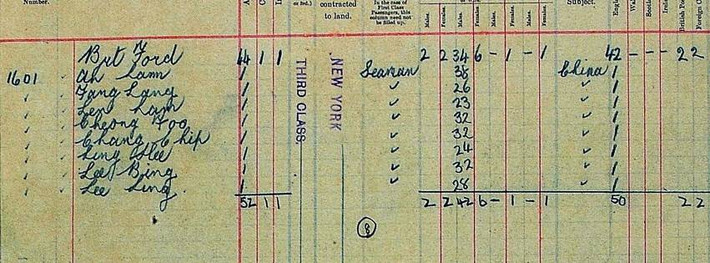 Number.
contracted to land.
In the case of First Class Passengers, this column need not be filled up.
Subject.
Males. Females.
Brt Ford 44 1 1 2 2 34 6 - 1 - 1 42 - - - 2 2
1601 Ah Lam 1 Seaman 38 China 1
Fang Lang 1 " 26 " 1
Len Lam 1 " 23 " 1
Cheong Foo 1 " 32 " 1
Chang Chip 1 " 32 " 1
Ling Hee 1 " 24 " 1
Lee Bing 1 " 32 " 1
Lee Ling 1 " 28 " 1
52 1 1 2 2 42 6 - 1 - 1 50 2 2
THIRD CLASS.
NEW YORK
8